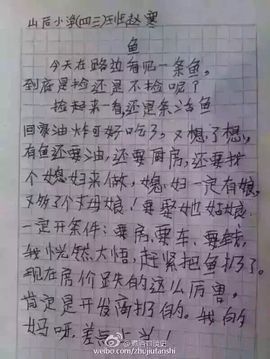 山后小学(四三)班 赵寒
鱼
今天在路边看见一条鱼,
到底是捡还是不捡呢?
捡起来一看还是条活鱼
回家油炸可好吃了,又想了想,
有鱼还要油,还要厨房,还要找
个媳妇来做,媳妇一定有娘,
又多了个丈母娘!要娶她姑娘
一定开条件:要房、要车、要钱,
我恍然大悟,赶紧把鱼扔了。
现在房价跌的这么厉害,
肯定是开发商扔的。我的
妈呀,差点上当!
http://weibo.com/zhujiutanshi